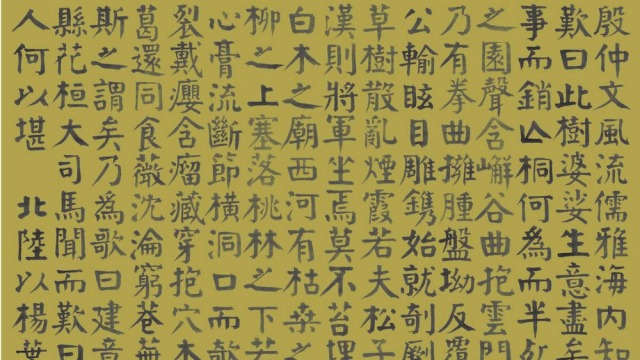 殷仲文風流儒雅海内知
歎曰此樹婆娑生意盡矣
事而銷亾桐何為而半死
之園聲含嶰谷曲抱雲門
乃有拳曲擁腫盤坳反覆
公輸眩目雕鐫始就剞劂
草樹散亂煙霞若夫松子
漢則將軍坐焉莫不苔埋
白木之廟西河有枯桒之
柳之上塞落桃林之下若
心膏流斷節橫洞口而欹
裂戴癭含瘤藏穿抱穴木
葛還同食薇沈淪窮巷蕪
斯之謂矣乃為歌曰建章
縣花桓大司馬聞而歎曰
人何以堪 北陸以楊葉